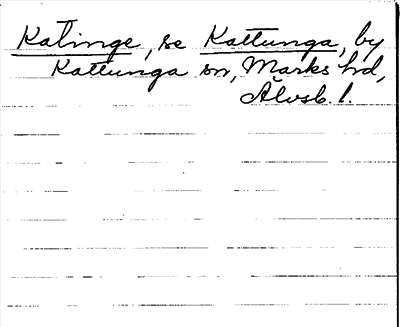 Katinge, se Kattunga, by
Kattunga sn, Marks hd,
Älvsb. l.